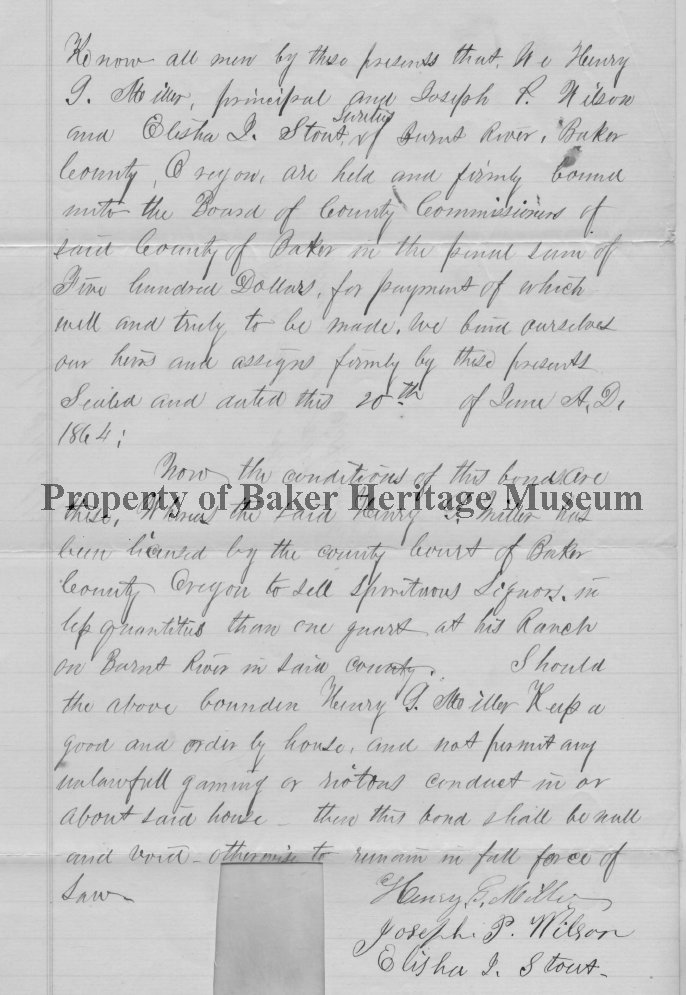 Know all men by these presents that, We Henry
G. Miller, principal and Joseph P. Wilson
Sureties
and Elisha I. Stout, of Burnt River, Baker
County, Oregon, are held and firmly bound
unto the Board of County Commissioners of
said County of Baker in the penal sum of
Five hundred Dollars, for payment of which
well and truly to be made. We bind ourselves
our heirs and assigns firmly by these presents
Sealed and dated this 20th of June A.D.
1864;
Now the conditions of this bond are
Property of Baker Heritage Museum
these, Whereas the said Henry G. Miller has
been licensed by the county Court of Baker
County Oregon to sell Spirituous Liquors. in
less quantities than one quart at his Ranch
on Burnt River in said county. Should
the above bounden Henry G. Miller Keep a
good and order by house, and not permit any
unlawfull gaming or riotous conduct in or
about said house - then this bond shall be null
and void - otherwise to remain in full force of
Law
Henry G. Miller
Joseph P. Wilson
Elisha I. Stout